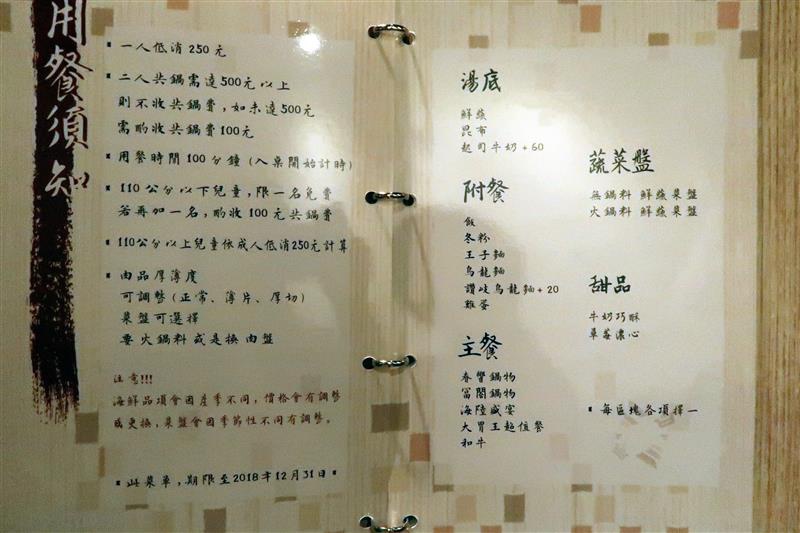 用餐須知
▪ 一人低消250元
▪ 二人共鍋需達500元以上
則不收共鍋費，如未達500元
需酌收共鍋費100元
▪ 用餐時間100分鐘(入桌開始計時)
▪ 110公分以下兒童，限一名免費
若再加一名，酌收100元共鍋費
▪ 110公分以上兒童依成人低消250元計算
▪ 肉品厚薄度
可調整(正常、薄片、厚切)
菜盤可選擇
要火鍋料或是換肉盤
注意!!!
海鮮品項會因產季不同，價格會有調整
或更換，菜盤會因季節性不同有調整。
▪ 此菜單，期限至2018年12月31日 ▪
湯底
鮮蔬
昆布
起司牛奶+60
附餐
飯
冬粉
王子麵
烏龍麵
讚岐烏龍麵+20
雞蛋
主餐
春響鍋物
富閣鍋物
海陸盛宴
大胃王超值餐
和牛
蔬菜盤
無鍋料 鮮蔬菜盤
火鍋料 鮮蔬菜盤
甜品
牛奶巧酥
草莓濃心
▪ 每區塊各項擇一